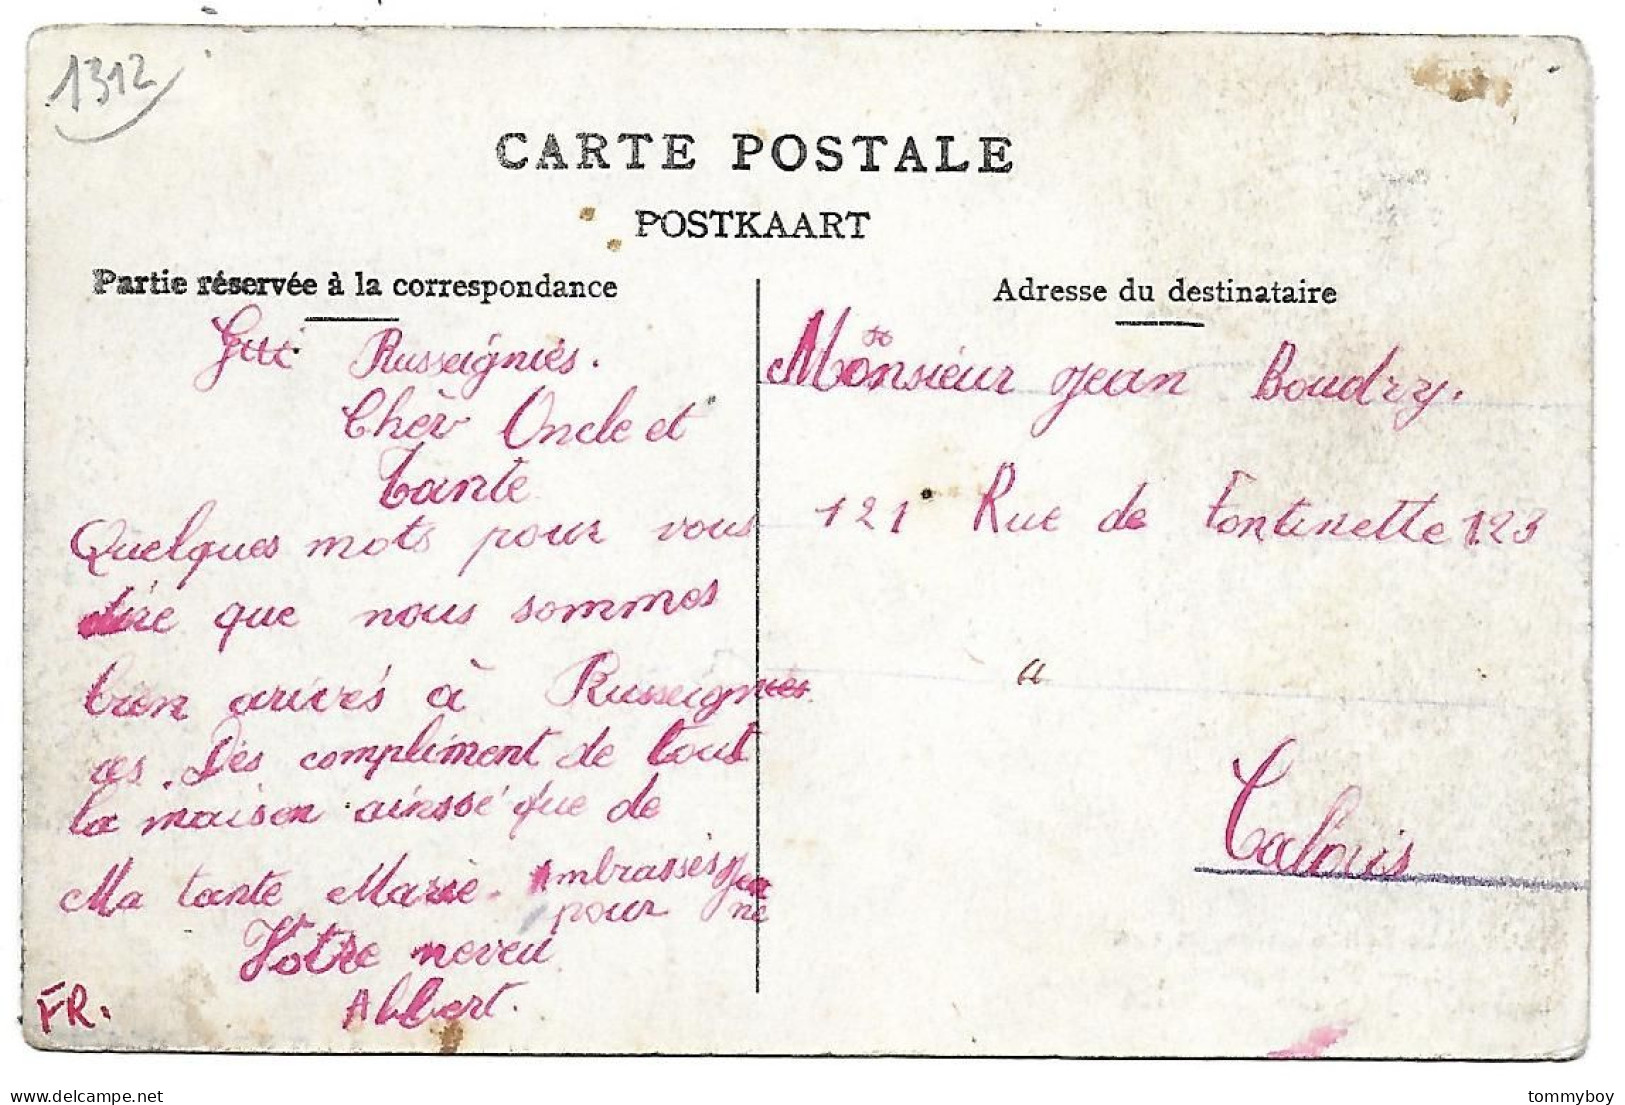 1312
CARTE POSTALE
POSTKAART
Partie réservée à la correspondance
Russeignies.
Chèr Oncle et
tante
Quelques mots pour vous
dire que nous sommes
bien arivés à Russeignies
es. Des compliment de tout
la maison ainssé que de
Ma tante Marie. Ambrassés Jean
pour ne
Votre neveu
Albert.
FR.
Adresse du destinataire
Monsieur Jean Boudry.
121 Rue de Fontinette 123
a
Calais
delcampe.net
tommyboy